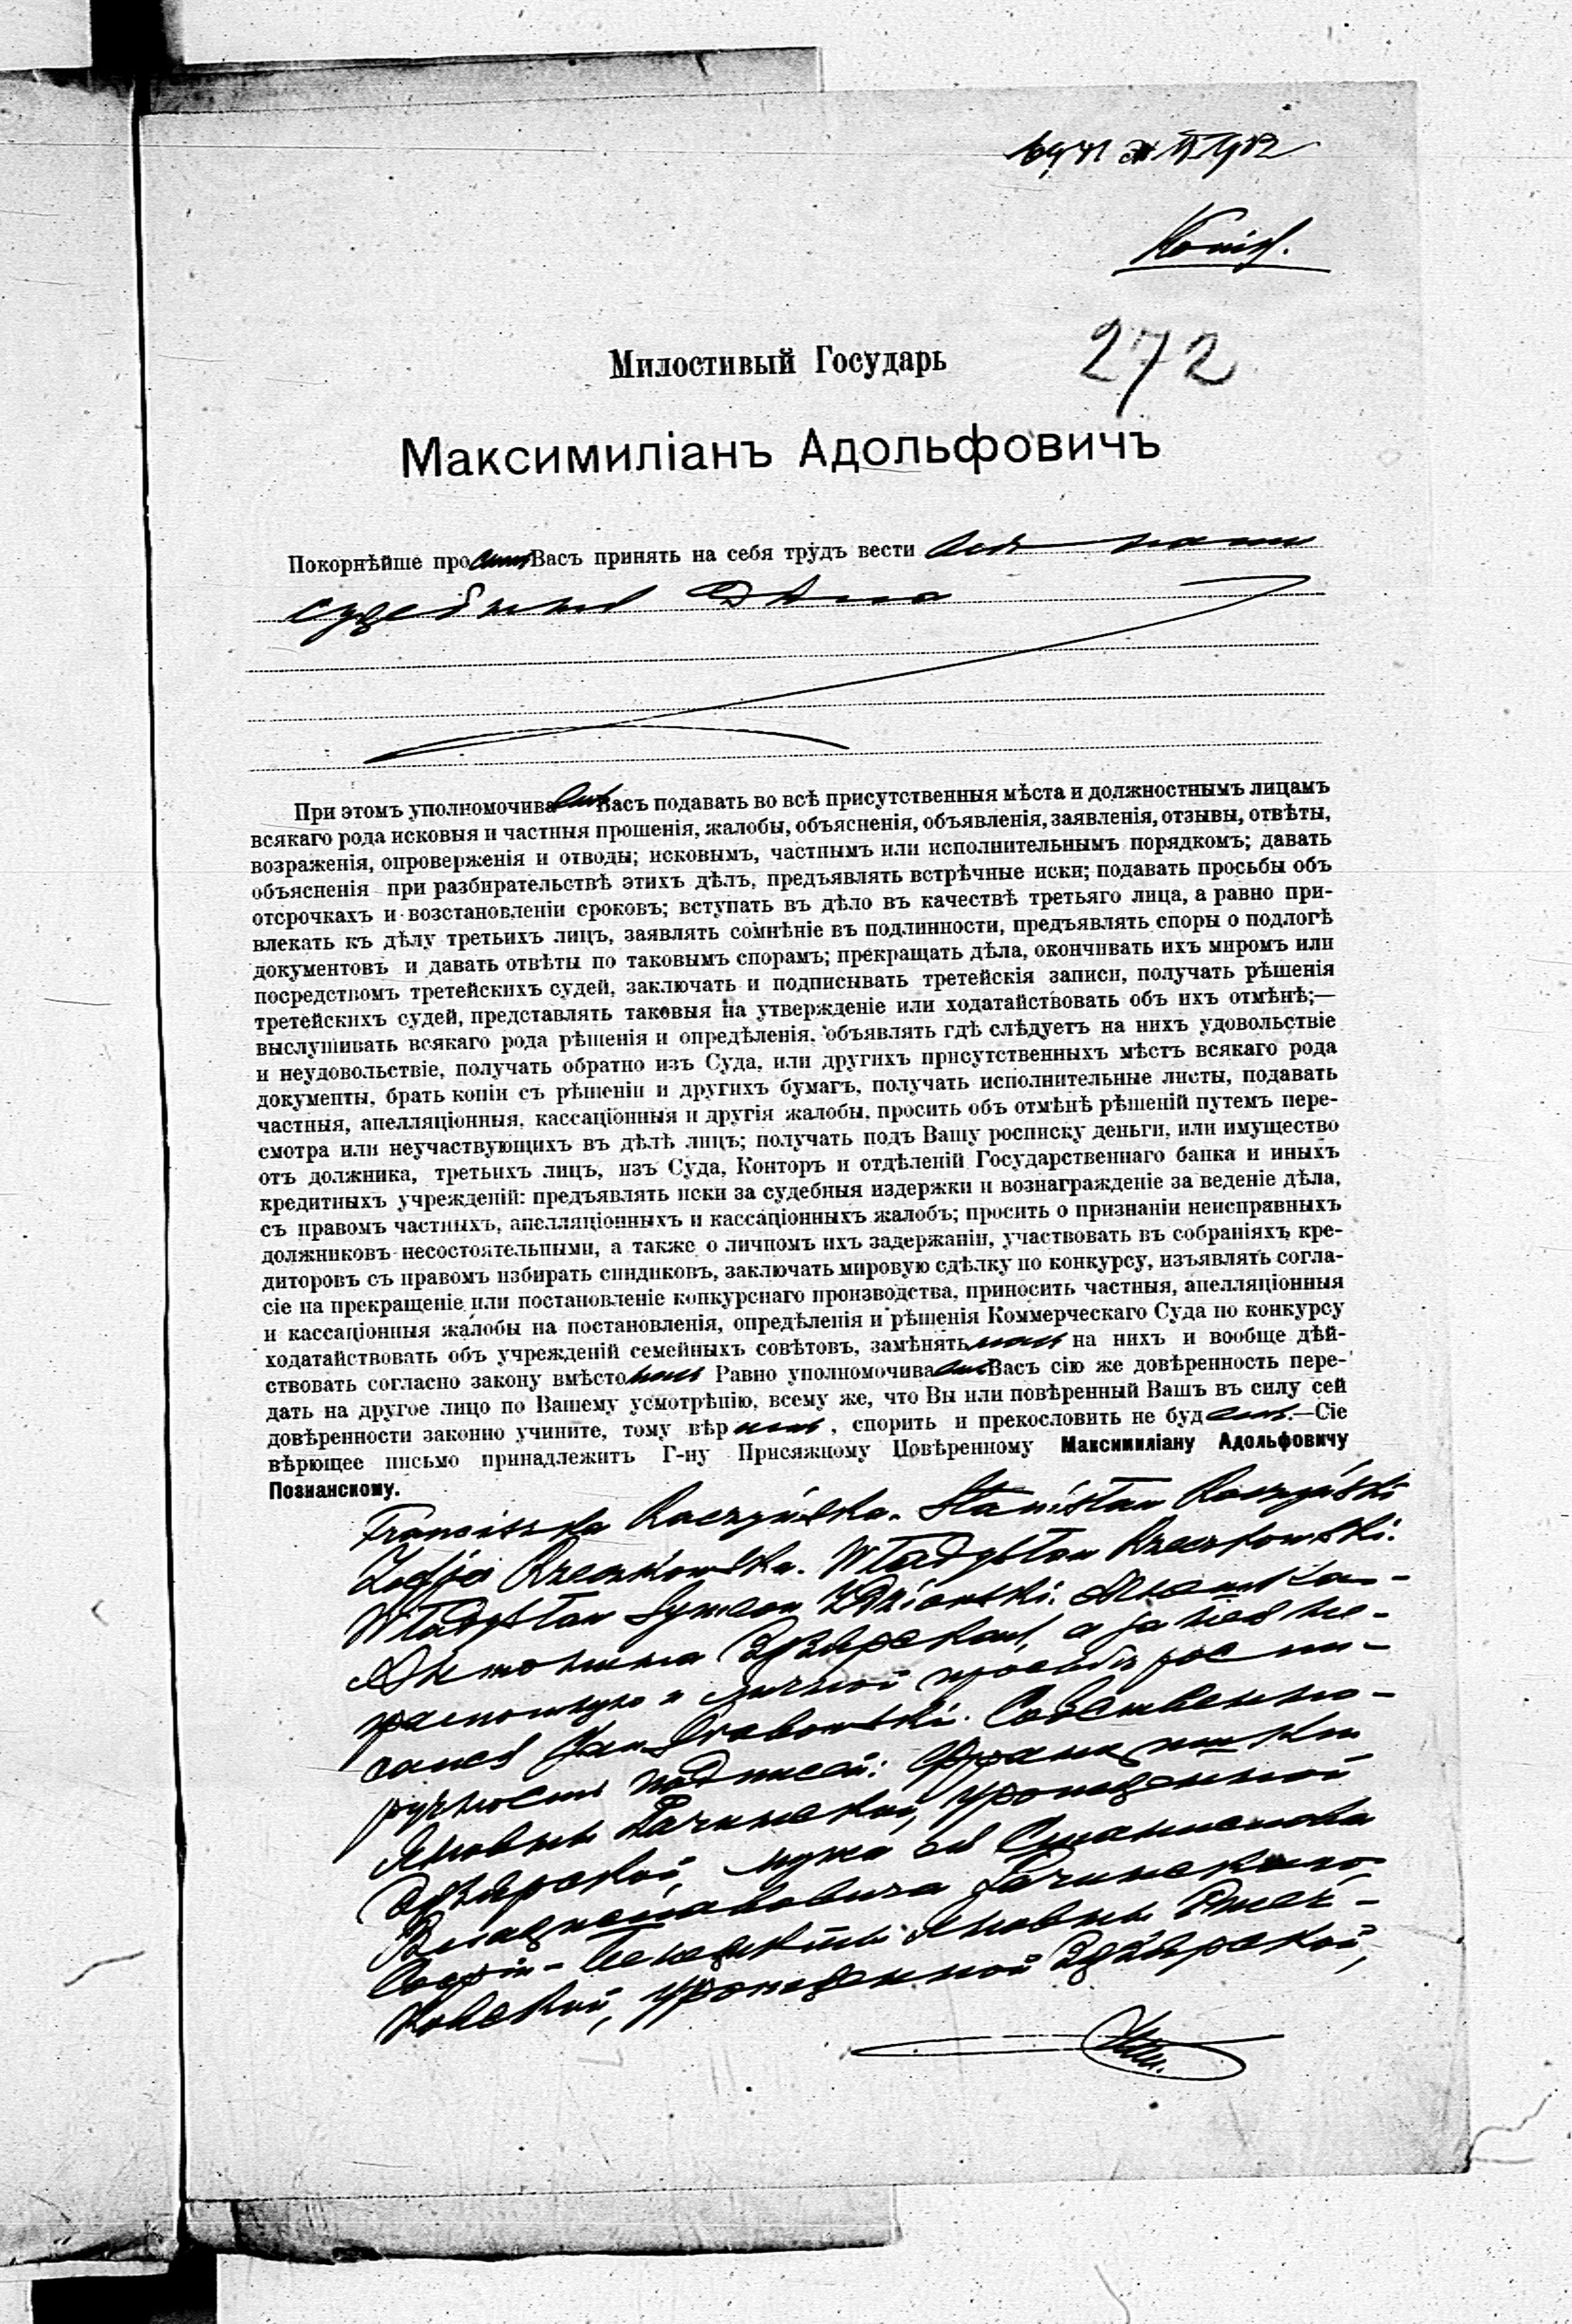 272
Милостивый Государь
Максимиліанъ Адольфовичъ
Покорнѣйше просимъ Васъ принять на себя трудъ вести всѣ наши
судебныя дѣла
При этомъ уполномочиваемъ Васъ подавать во всѣ присутственныя мѣста и должностнымъ лицамъ
всякаго рода исковыя и частныя прошенія, жалобы, объясненія, объявленія, заявленія, отзывы, отвѣты,
возраженія, опроверженія и отводы; исковымъ, частнымъ или исполнительнымъ порядкомъ; давать
объясненія при разбирательствѣ этихъ дѣлъ, предъявлять встрѣчные иски; подавать просьбы объ
отсрочкахъ и возстановленіи сроковъ; вступать въ дѣло въ качествѣ третьяго лица, а равно при-
влекать къ дѣлу третьихъ лицъ, заявлять сомнѣніе въ подлинности, предъявлять споры о подлогѣ
документовъ и давать отвѣты по таковымъ спорамъ; прекращать дѣла, окончивать ихъ миромъ или
посредствомъ третейскихъ судей, заключать и подписывать третейскія записи, получать рѣшенія
третейскихъ судей, представлять таковыя на утвержденіе или ходатайствовать объ ихъ отмѣнѣ;—
выслушивать всякаго рода рѣшенія и опредѣленія, объявлять гдѣ слѣдуетъ на нихъ удовольствіе
и неудовольствіе, получать обратно изъ Суда, или другихъ присутственныхъ мѣстъ всякаго рода
документы, брать копіи съ рѣшеніи и другихъ бумагъ, получать исполнительные листы, подавать
частныя, апелляціонныя, кассаціонныя и другія жалобы, просить объ отмѣнѣ рѣшеній путемъ пере-
смотра или неучаствующихъ въ дѣлѣ лицъ; получать подъ Вашу росписку деньги, или имущество
отъ должника, третьихъ лицъ, изъ Суда, Конторъ и отдѣленій Государственнаго банка и иныхъ
кредитныхъ учрежденій: предъявлять иски за судебныя издержки и вознагражденіе за веденіе дѣла,
съ правомъ частныхъ, апелляціонныхъ и кассаціонныхъ жалобъ; просить о признаніи неисправныхъ
должниковъ несостоятельными, а также о личномъ ихъ задержаніи, участвовать въ собраніяхъ кре-
диторовъ съ правомъ избирать синдиковъ, заключать мировую сдѣлку по конкурсу, изъявлять согла-
сіе на прекращеніе или постановленіе конкурснаго производства, приносить частныя, апелляціонныя
и кассаціонныя жалобы на постановленія, опредѣленія и рѣшенія Коммерческаго Суда по конкурсу
ходатайствовать объ учрежденій семейныхъ совѣтовъ, замѣнять насъ на нихъ и вообще дѣй-
ствовать согласно закону вмѣсто насъ Равно уполномочиваемъ Васъ сію же довѣренность пере-
дать на другое лицо по Вашему усмотрѣнію, всему же, что Вы или повѣренный Вашъ въ силу сей
довѣренности законно учините, тому вѣримъ, спорить и прекословить не будемъ.—Сіе
вѣрющее письмо принадлежитъ Г-ну Присяжному Повѣренному Максимиліану Адольфовичу
Познанскому.
Franciszka Raczyńska. Stanisław Raczyński
Zofja Rzeczkowska. Władysław Rzeczkowski.
Władysław Symeon Zdziarski.
Антонина Здзярская, а за нея не-
грамотную и личной просьбѣ рос пи-
сался Jan Grabowski. Собственно-
ручность подписей: Францишки
Яновны Рачинской, урожденной
Здзярской, мужа ея Станислава
Рачинскаго,
Софіи- Бенедикты Яновны Ржеч-
ковской, урожденной Здзярской,